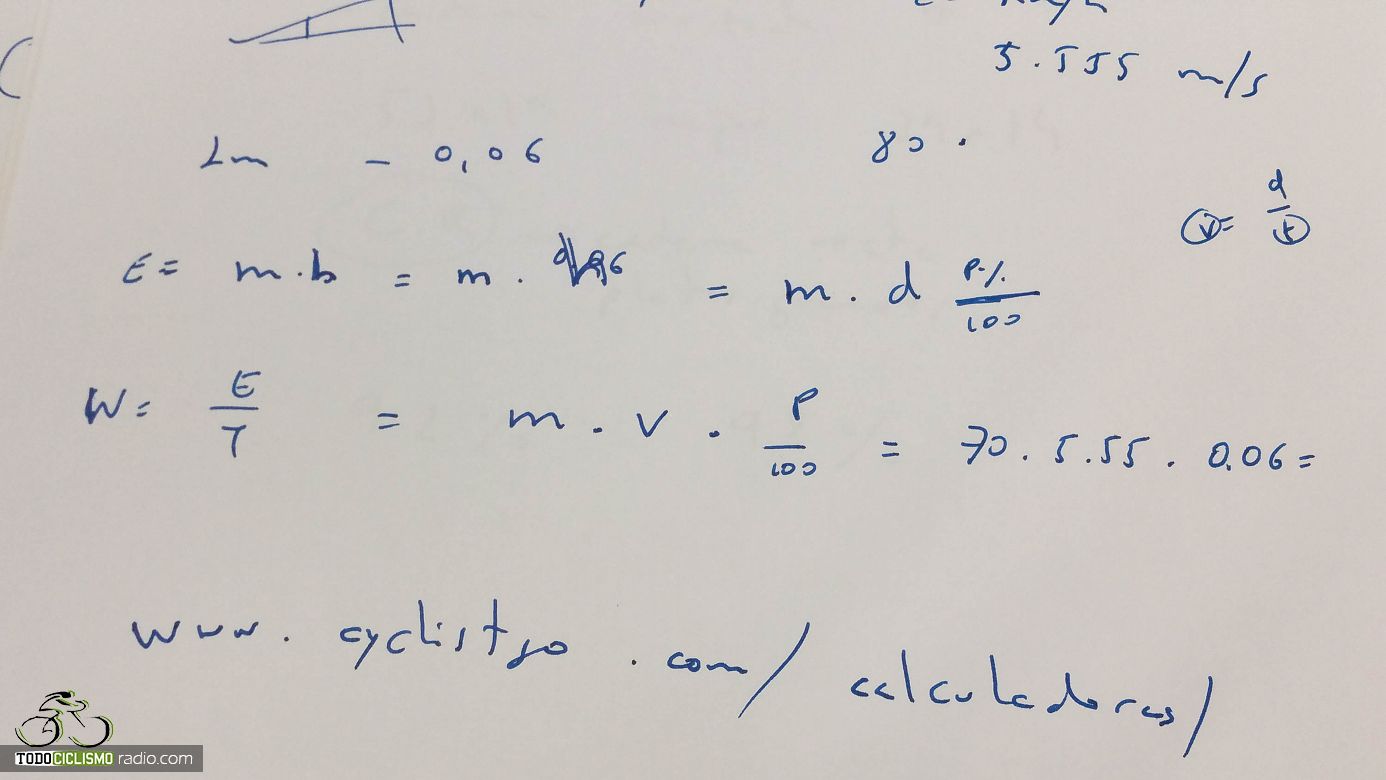 5.555 m/s
Lm - 0,06
80 .
V = d/t
E = m.b = m . = m . d P%/100
W = E/T = m . v . P/100 = 70 . 5.55 . 0.06 =
www.cyclistgo.com/calculadoras/
TODOCICLISMO radio.com